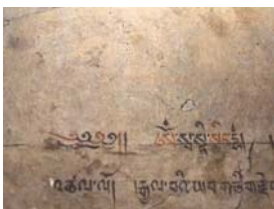 ༄༅༅། །ཨོཾ་སྭ་སྟི་སིདྡྷཾ།
འཚལ་ལོ། །རྒྱལ་བའི་ཡབ་གཅིག